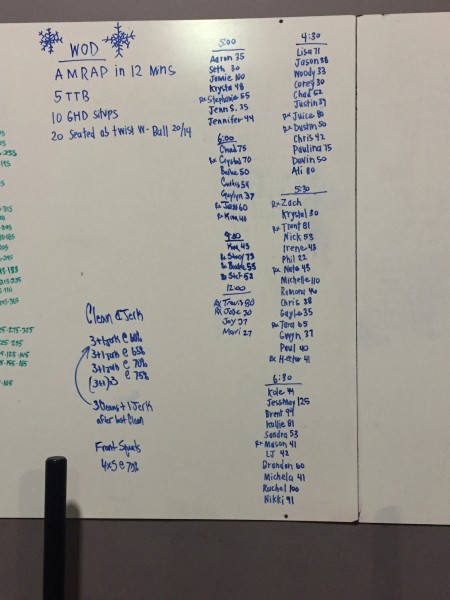 WOD
AMRAP in 12 mins
5 TTB
10 GHD situps
20 Seated ab twist w- Ball 20/14
Clean & Jerk
3+1 Jerk @ 60%
3+1 Jerk @ 65%
3+1 Jerk @ 70%
@ 75%
3 Cleans + 1 Jerk
after last clean
Front Squats
4x5 @ 70%
5:00
Aaron 35
Seth 30
Jennie 100
Krysta 48
Rx Stephanie 55
Jenn S. 35
Jennifer 44
6:00
Chad 75
Rx Crystal 70
50
Curtis 54
37
Rx Jess 60
Rx Kim 48
9:00
45
Rx 73
Rx 55
Rx 52
12:00
Rx Travis 80
Rx Jose 30
Jay 27
Mari 27
4:30
Lisa 71
Jason 38
Woody 33
Corey 30
Chad 52
Justin 37
Rx Juice 80
Rx Dustin 50
Chris 42
Paulina 75
Davin 50
Ali 80
5:30
Rx Zach
Krystal 30
Rx Trent 81
Nick 53
Irene 43
Phil 22
Rx Nate 45
Michelle 110
Romona 40
Chris 38
Gayle 35
Rx Tara 65
Gwyn 37
Paul 40
Rx Hector 41
6:30
Kole 44
Jessmay 125
Brent 99
Kullie 81
Sandra 53
Rx Mason 41
LJ 42
Brandon 60
Michela 41
Rachel 100
Nikki 91